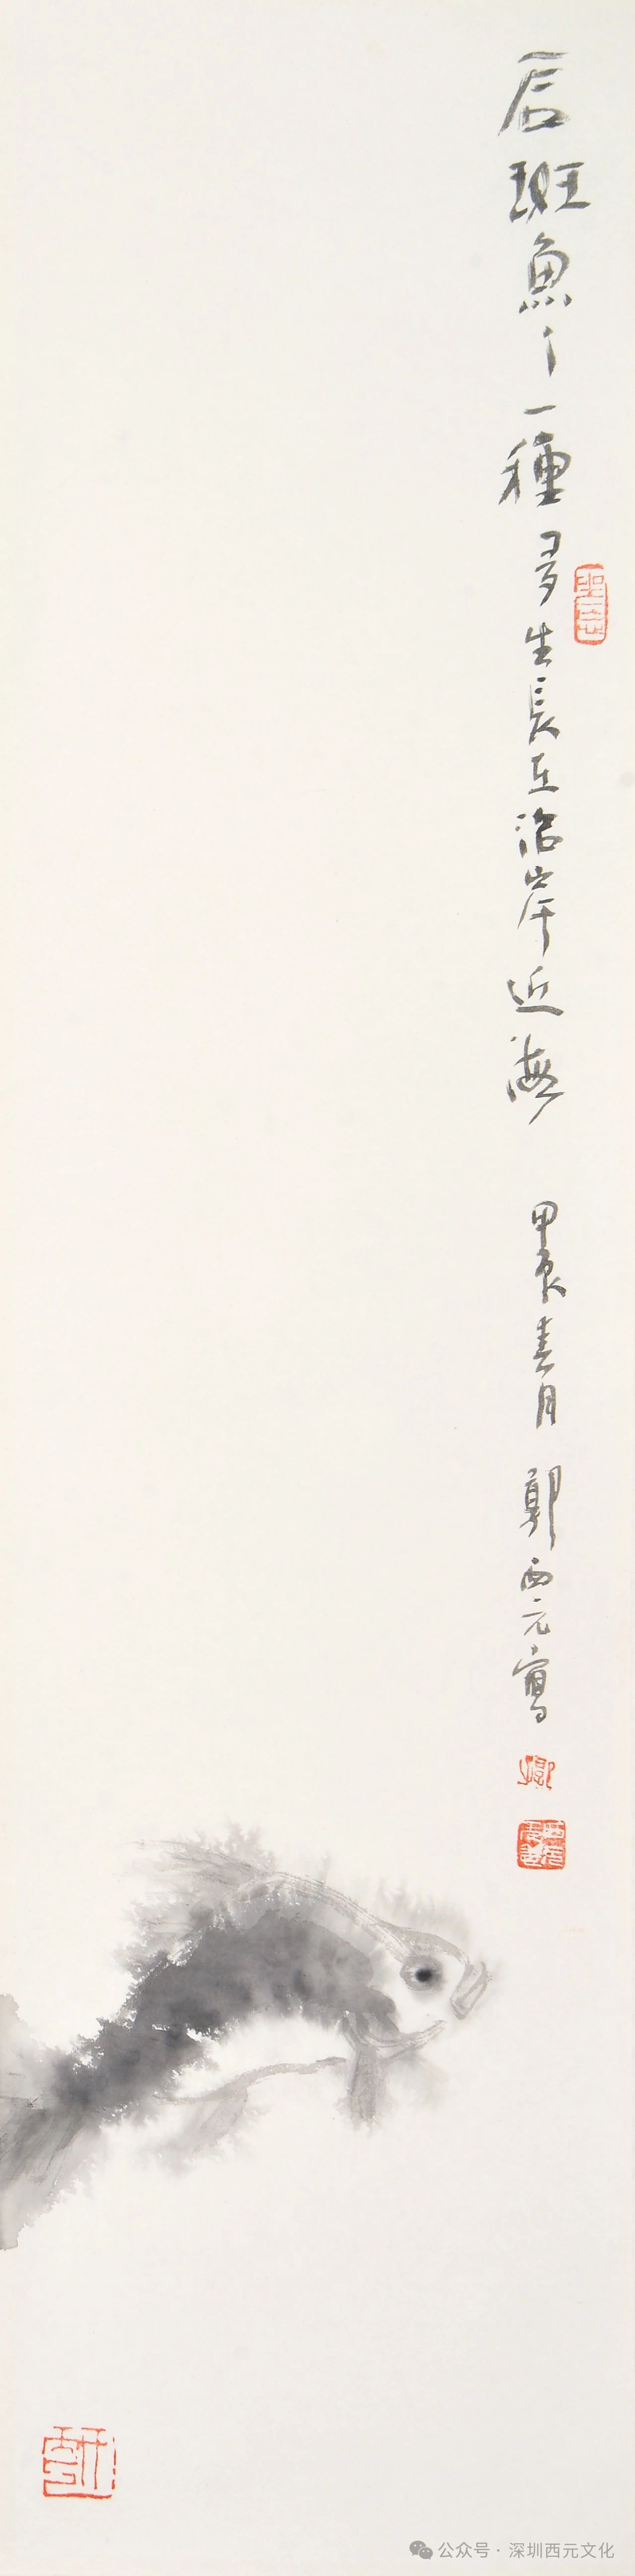 石班魚之一種多生長在沿岸近海 甲辰春月 郭西元寫
公众号 · 深圳西元文化